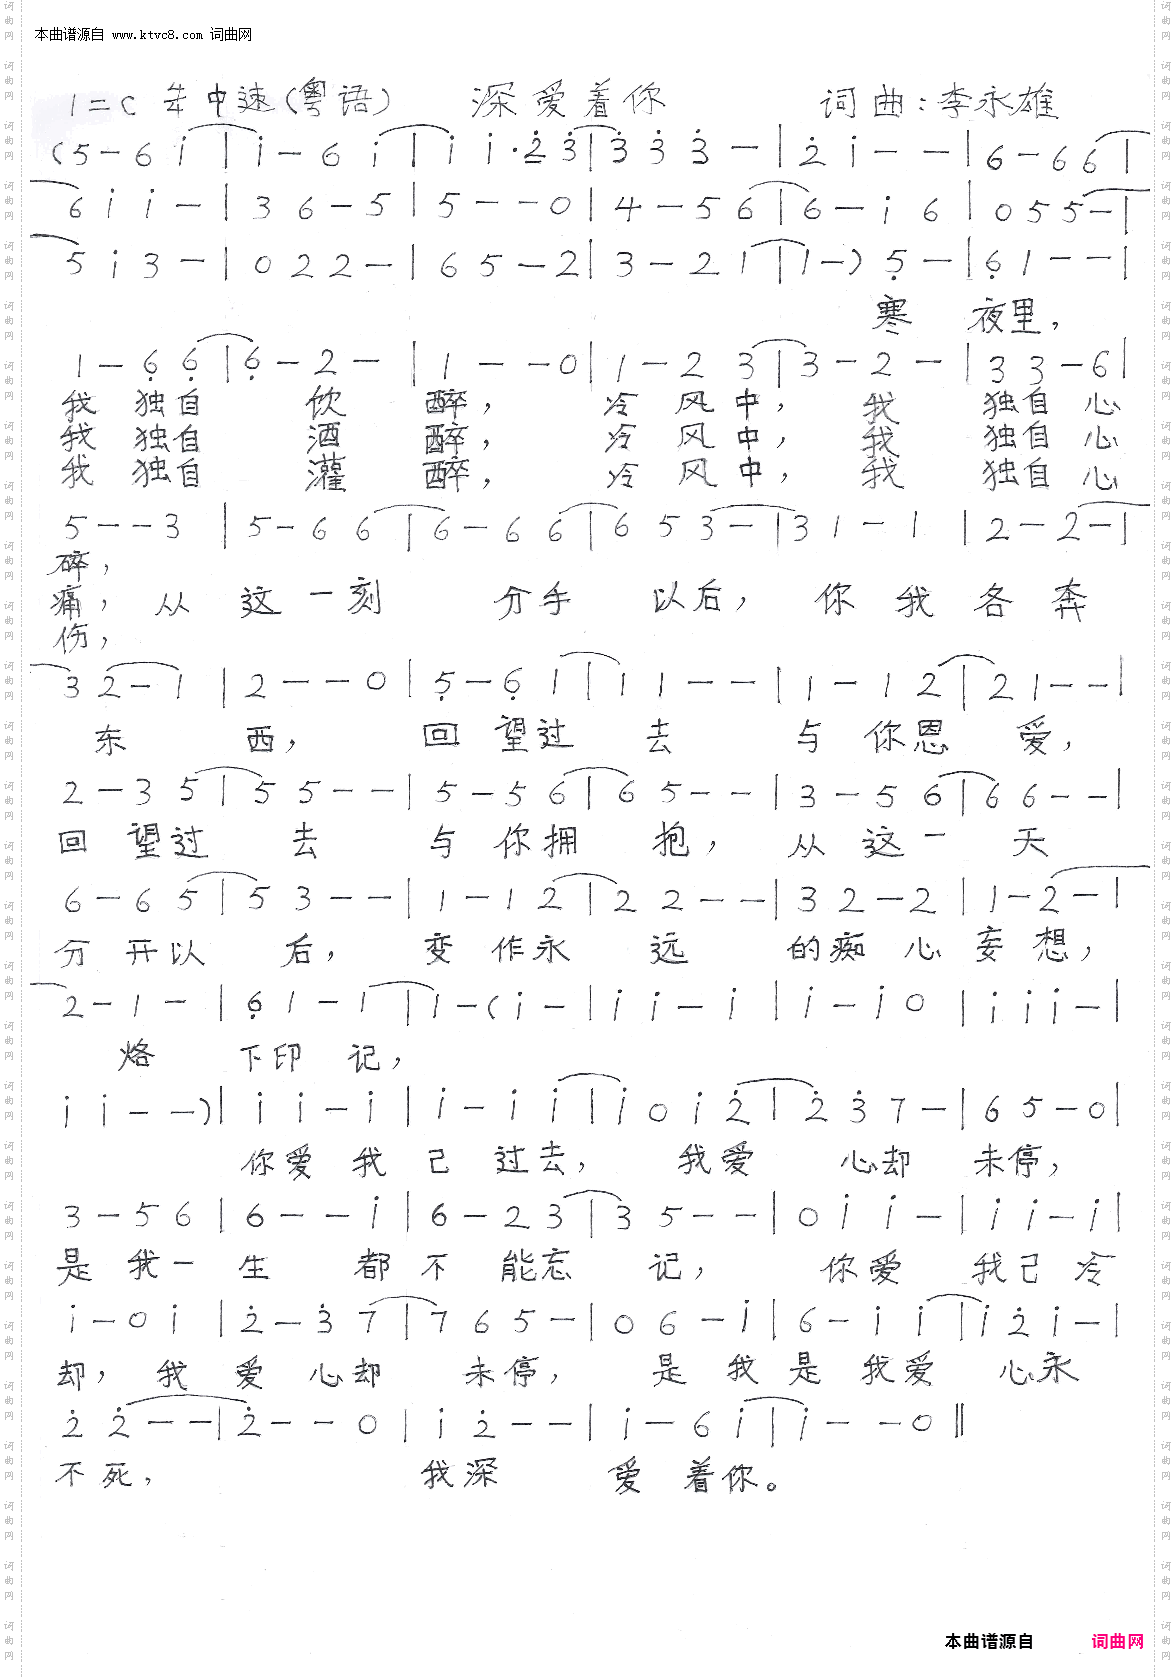 本曲谱源自 www.ktvc8.com 词曲网
1=C 4/4 中速(粤语) 深爱着你 词曲:李永雄
(5-6i|i-6i|ii·23|333-|2i--|6-66|
6ii-|36-5|5--0|4-56|6-i6|055-|
5i3-|022-|65-2|3-21|1-)5-|61--|
寒 夜里,
1-66|6-2-|1--0|1-23|3-2-|33-6|
我 独自 饮 醉, 冷 风中, 我 独自心
我 独自 酒 醉, 冷 风中, 我 独自心
我 独自 灌 醉, 冷 风中, 我 独自心
5--3|5-66|6-66|653-|31-1|2-2-|
碎,
痛, 从 这一刻 分手 以后, 你我各奔
伤,
32-1|2--0|5-61|11--|1-12|21--|
东 西, 回望过 去 与你恩 爱,
2-35|55--|5-56|65--|3-56|66--|
回望过 去 与你拥 抱, 从这一 天
6-65|53--|1-12|22--|32-2|1-2-|
分开以 后, 变作永 远 的痴心妄想,
2-1-|61-1|1-(i-|ii-i|i-i0|iii-|
烙 下印记,
ii--)|ii-i|i-ii|i0i2|237-|65-0|
你爱我己过去, 我爱 心却 未停,
3-56|6--i|6-23|35--|0ii-|ii-i|
是我一生 都不能忘 记, 你爱 我己冷
i-0i|2-37|765-|06-i|6-ii|i2i-|
却, 我爱心却 未停, 是我是我爱 心永
22--|2--0|i2--|i-6i|i--0‖
不死, 我深 爱着你。
本曲谱源自 词曲网